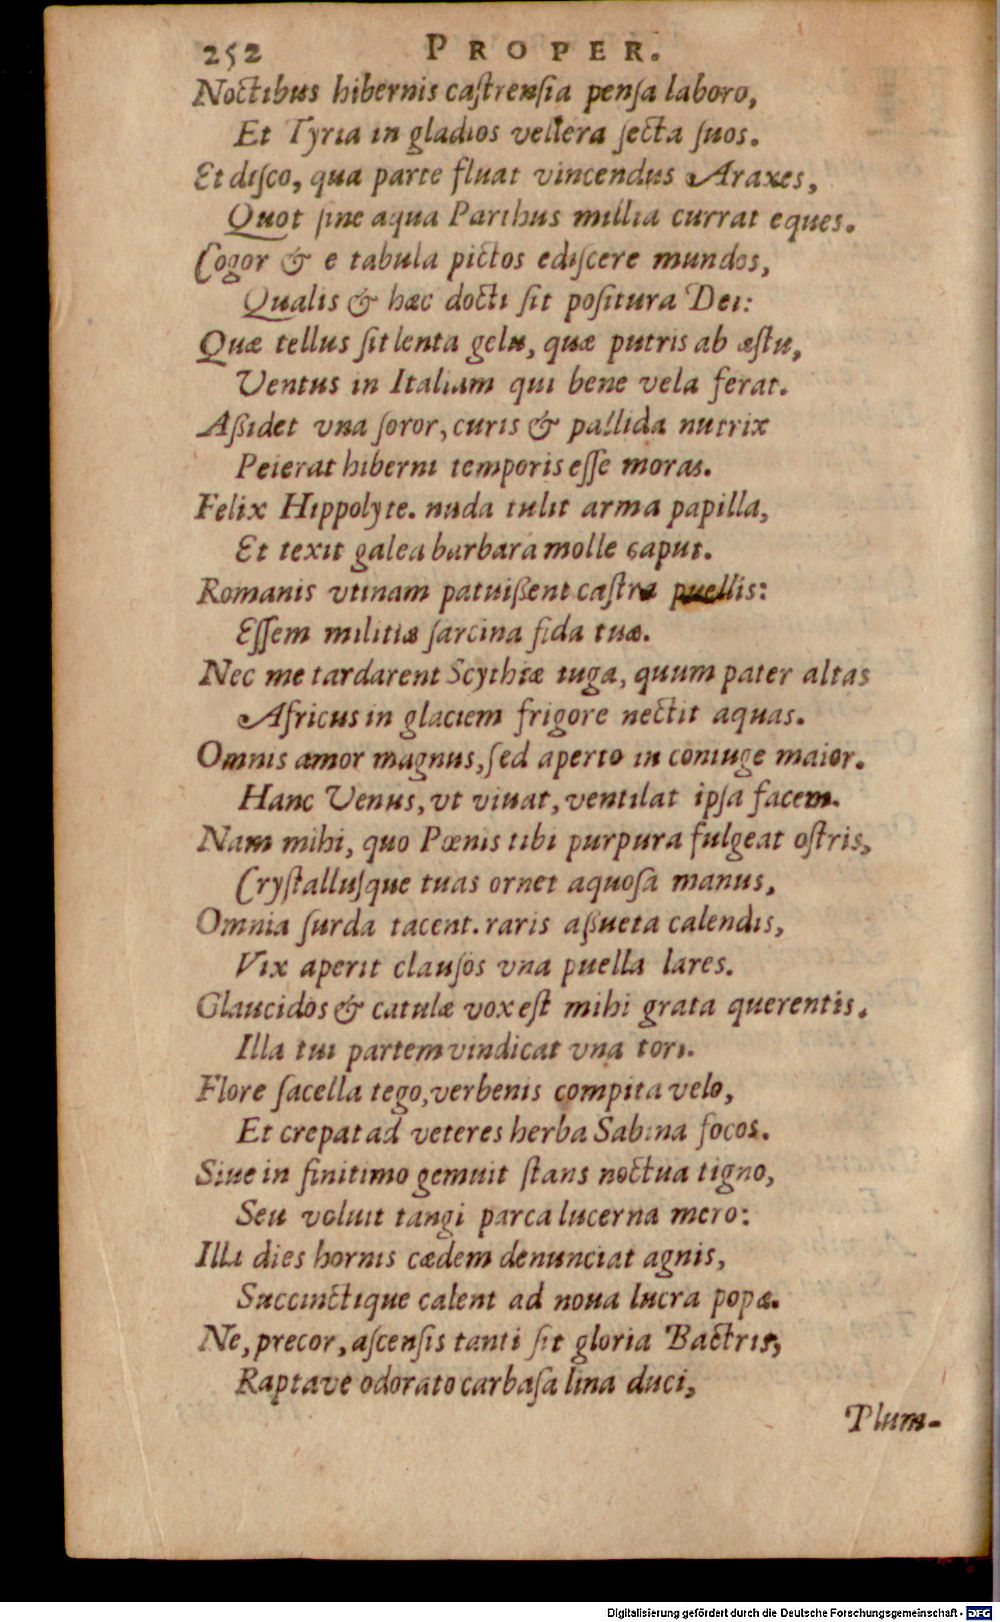 252 PROPER.
Noctibus hibernis caſtrenſia penſa laboro,
Et Tyria in gladios vellera ſecta ſuos.
Et diſco, qua parte fluat vincendus Araxes,
Quot ſine aqua Parthus millia currat eques.
Cogor & e tabula pictos ediſcere mundos,
Qualis & hæc docti ſit poſitura Dei:
Quæ tellus ſit lenta gelu, quæ putris ab æſtu,
Ventus in Italiam qui bene vela ferat.
Aßidet vna ſoror, curis & pallida nutrix
Peierat hiberni temporis eſſe moras.
Felix Hippolyte. nuda tulit arma papilla,
Et texit galea barbara molle caput.
Romanis vtinam patuißent caſtra puellis:
Eſſem militiæ ſarcina fida tuæ.
Nec me tardarent Scythiæ iuga, quum pater altas
Africus in glaciem frigore nectit aquas.
Omnis amor magnus, ſed aperto in coniuge maior.
Hanc Venus, vt viuat, ventilat ipſa facem.
Nam mihi, quo Pœnis tibi purpura fulgeat oſtris,
Cryſtalluſque tuas ornet aquoſa manus,
Omnia ſurda tacent. raris aßueta calendis,
Vix aperit clauſos vna puella lares.
Glaucidos & catulæ vox eſt mihi grata querentis.
Illa tui partem vindicat vna tori.
Flore ſacella tego, verbenis compita velo,
Et crepat ad veteres herba Sabina focos.
Siue in finitimo gemuit ſtans noctua tigno,
Seu voluit tangi parca lucerna mero:
Illa dies hornis cædem denunciat agnis,
Succinctique calent ad noua lucra popæ.
Ne, precor, aſcenſis tanti ſit gloria Bactris,
Raptave odorato carbaſa lina duci,
Plum-
Digitalisierung gefördert durch die Deutsche Forschungsgemeinschaft - DFG